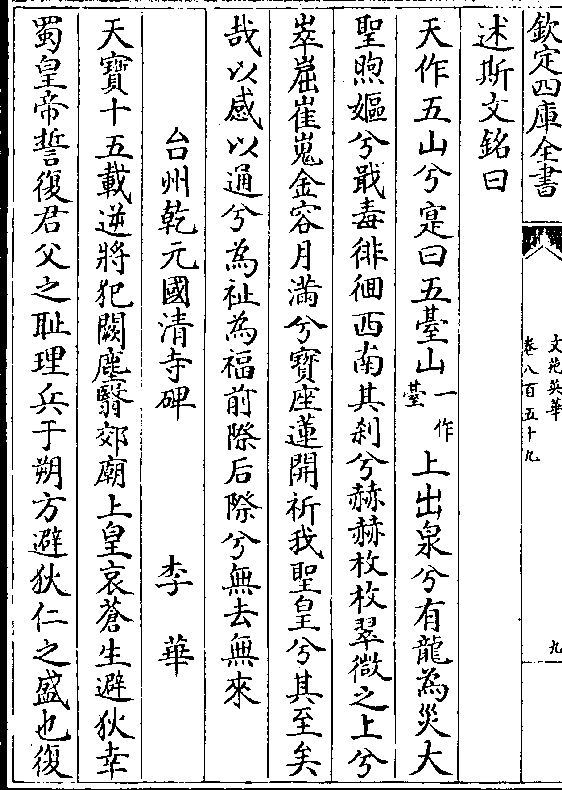 欽定四庫全書
文苑英華
卷八百五十九
九
述斯文銘曰
天作五山兮寔曰五臺山一作臺上出泉兮有龍為災大
聖煦嫗兮戢毒徘徊西南其刹兮赫赫枚枚翠微之上兮
崒崫崔嵬金容月滿兮寶座蓮開祈我聖皇兮其至矣
哉以感以通兮為祉為福前際后際兮無去無來
台州乾元國清寺碑　李華
天寶十五載逆將犯闕塵翳郊廟上皇哀蒼生避狄幸
蜀皇帝誓復君父之耻理兵于朔方避狄仁之盛也復